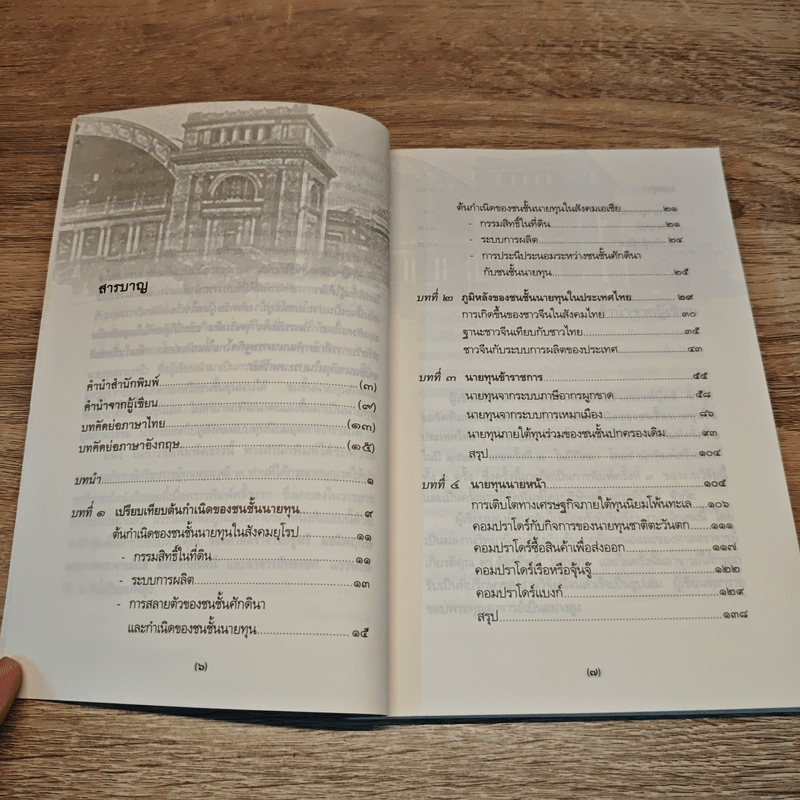 สารบาญ
คำนำสำนักพิมพ์ (๓)
คำนำจากผู้เขียน (๙)
บทคัดย่อภาษาไทย (๑๓)
บทคัดย่อภาษาอังกฤษ (๑๕)
บทนำ ๑
บทที่ ๑ เปรียบเทียบต้นกำเนิดของชนชั้นนายทุน ๙
ต้นกำเนิดของชนชั้นนายทุนในสังคมยุโรป ๑๑
- กรรมสิทธิ์ในที่ดิน ๑๑
- ระบบการผลิต ๑๓
- การสลายตัวของชนชั้นศักดินา
และกำเนิดของชนชั้นนายทุน ๑๕
(๖)
ต้นกำเนิดของชนชั้นนายทุนในสังคมเอเชีย ๒๑
- กรรมสิทธิ์ในที่ดิน ๒๑
- ระบบการผลิต ๒๔
- การประนีประนอมระหว่างชนชั้นศักดินา
กับชนชั้นนายทุน ๒๕
บทที่ ๒ ภูมิหลังของชนชั้นนายทุนในประเทศไทย ๒๙
การเกิดขึ้นของชาวจีนในสังคมไทย ๓๐
ฐานะชาวจีนเทียบกับชาวไทย ๓๕
ชาวจีนกับระบบการผลิตของประเทศ ๔๓
บทที่ ๓ นายทุนข้าราชการ ๕๕
นายทุนจากระบบภาษีอากรผูกขาด ๕๘
นายทุนจากระบบการเหมาเมือง ๘๖
นายทุนภายใต้ทุนร่วมของชนชั้นปกครองเดิม ๙๓
สรุป ๑๐๔
บทที่ ๔ นายทุนนายหน้า ๑๐๕
การเติบโตทางเศรษฐกิจภายใต้ทุนนิยมโพ้นทะเล ๑๐๖
คอมปราโดร์กับกิจการของนายทุนชาติตะวันตก ๑๑๑
คอมปราโดร์ซื้อสินค้าเพื่อส่งออก ๑๑๗
คอมปราโดร์เรือหรือจุ้นจู๊ ๑๒๒
คอมปราโดร์แบงก์ ๑๒๙
สรุป ๑๓๘
(๗)